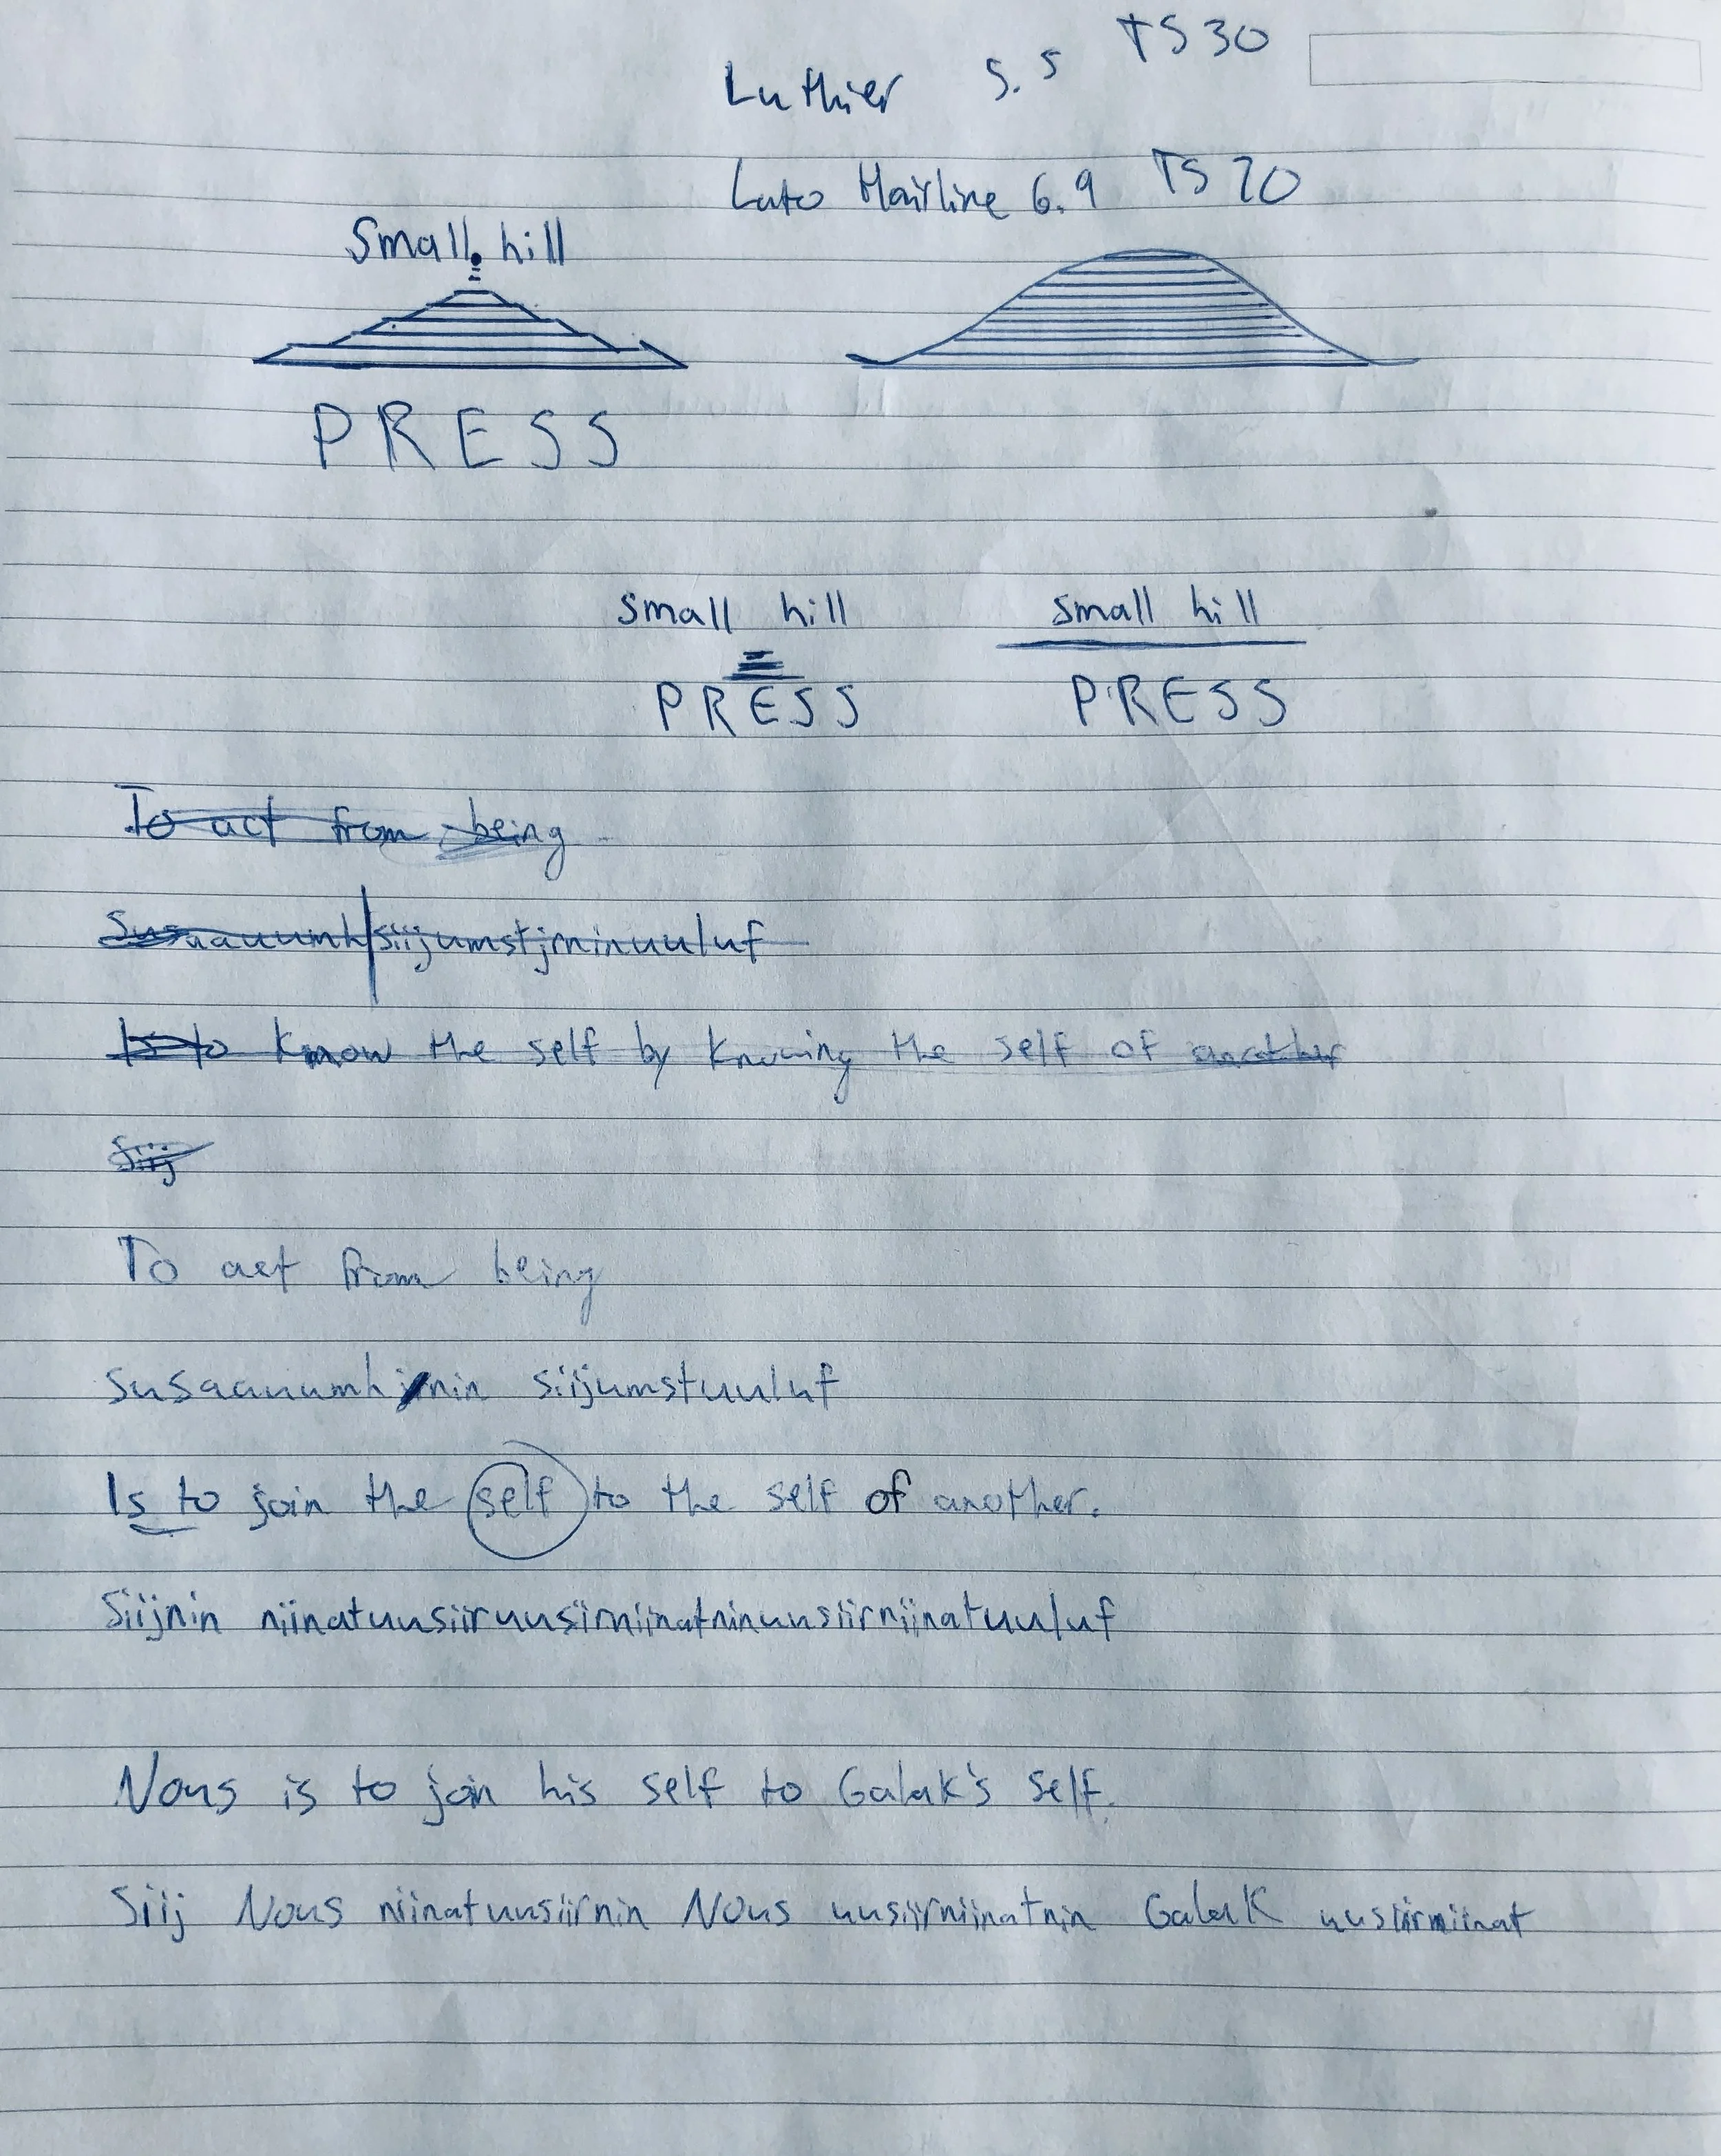 Luthier 5.5 TS 30
Lato Hairline 6.9 TS 20
Small hill
PRESS
small hill small hill
PRESS PRESS
To act from being
siijumstjrninuuluf
Is to know the self by knowing the self of another
Siij
To act from being
susaauumh nin siijumstuuluf
Is to join the self to the self of another.
Siijnin niinatuusiiruusiirniinatninuusiirniinatuuluf
Nous is to join his self to Galak's self.
Siij Nous niinatuusiirnin Nous uusiirniinatnin Galak uusiirniinat